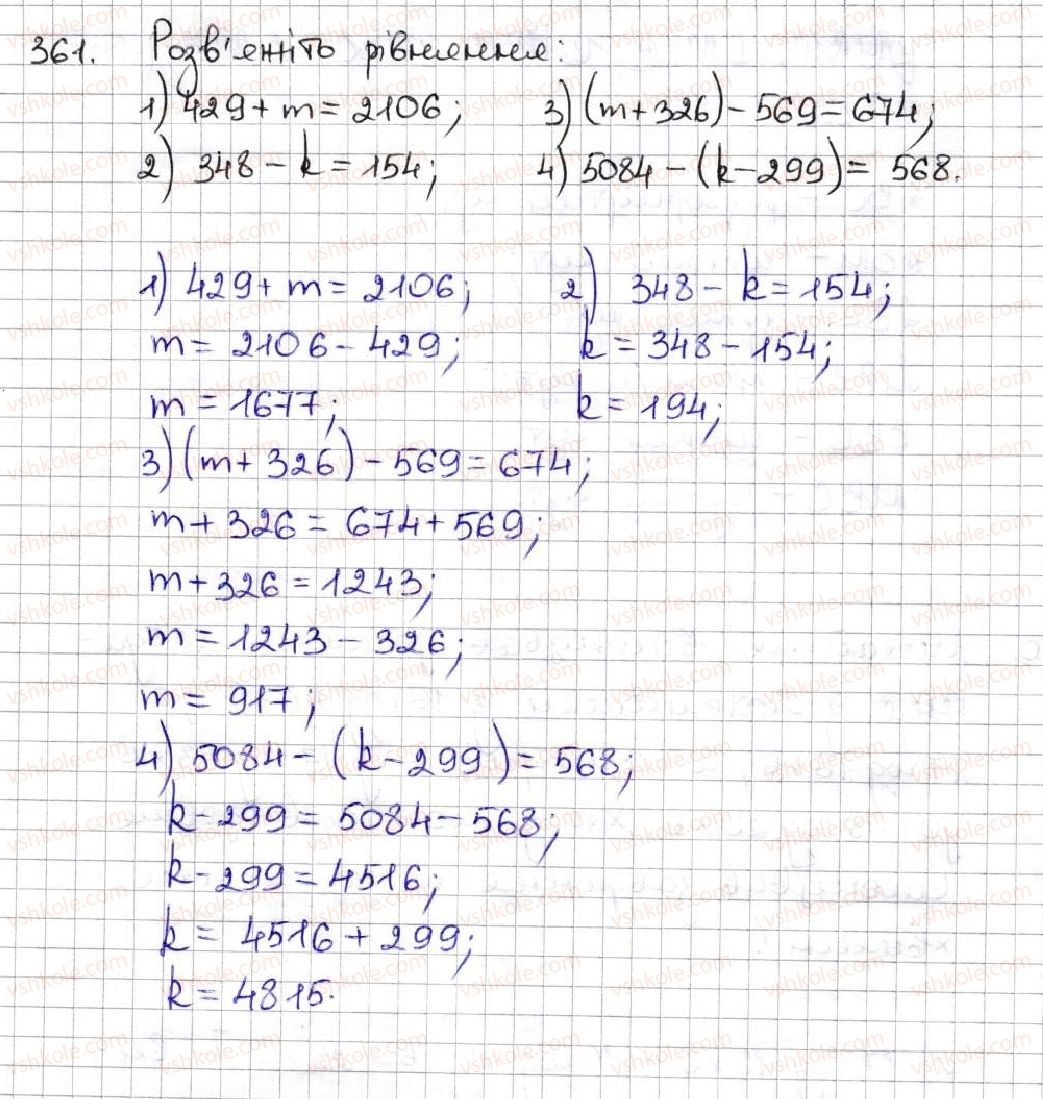 361. Розв'яжіть рівняння:
1) 429 + m = 2106; 3) (m + 326) - 569 = 674;
2) 348 - k = 154; 4) 5084 - (k - 299) = 568.
1) 429 + m = 2106; 2) 348 - k = 154;
m = 2106 - 429; k = 348 - 154;
m = 1677; k = 194;
3) (m + 326) - 569 = 674;
m + 326 = 674 + 569;
m + 326 = 1243;
m = 1243 - 326;
m = 917;
4) 5084 - (k - 299) = 568;
k - 299 = 5084 - 568;
k - 299 = 4516;
k = 4516 + 299;
k = 4815.